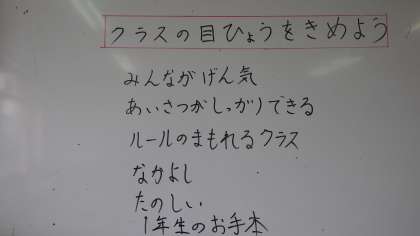 クラスの目ひょうをきめよう
みんながげん気
あいさつがしっかりできる
ルールのまもれるクラス
なかよし
たのしい
1年生のお手本